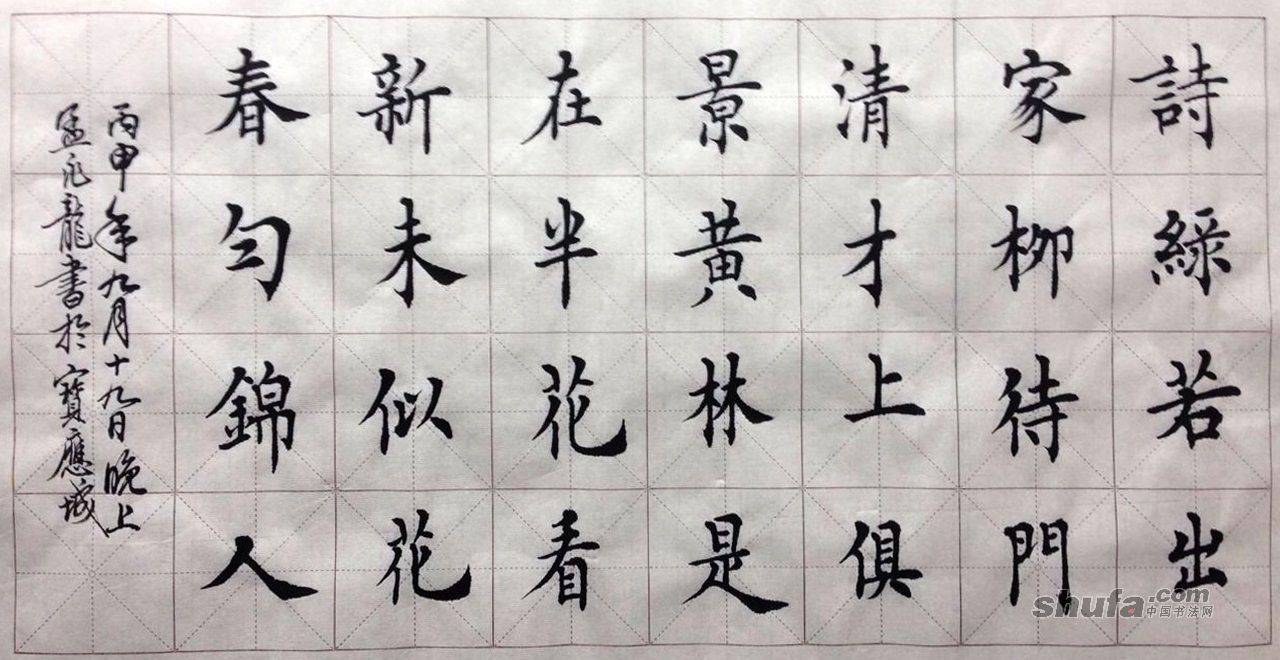 詩家清景在新春
綠柳才黃半未勻
若待上林花似錦
出門俱是看花人
丙申年九月十九日晚上
孟龍書於寶應城
shufa.com
中国书法网